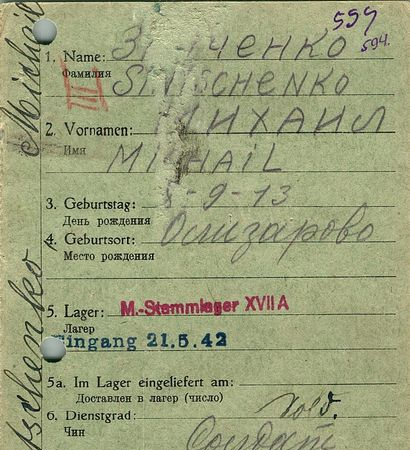 559
594.
III
1. Name:
Фамилия
2. Vornamen: МИХАИЛ
Имя MICHAIL
3. Geburtstag: -9-13
День рождения
4. Geburtsort:
Место рождения
5. Lager: M.-Stammlager XVII A
Лагер
Eingang 21.5.42
5a. Im Lager eingeliefert am:
Доставлен в лагер (число)
6. Dienstgrad: Sold.
Чин Солдат
Michail
tschenko